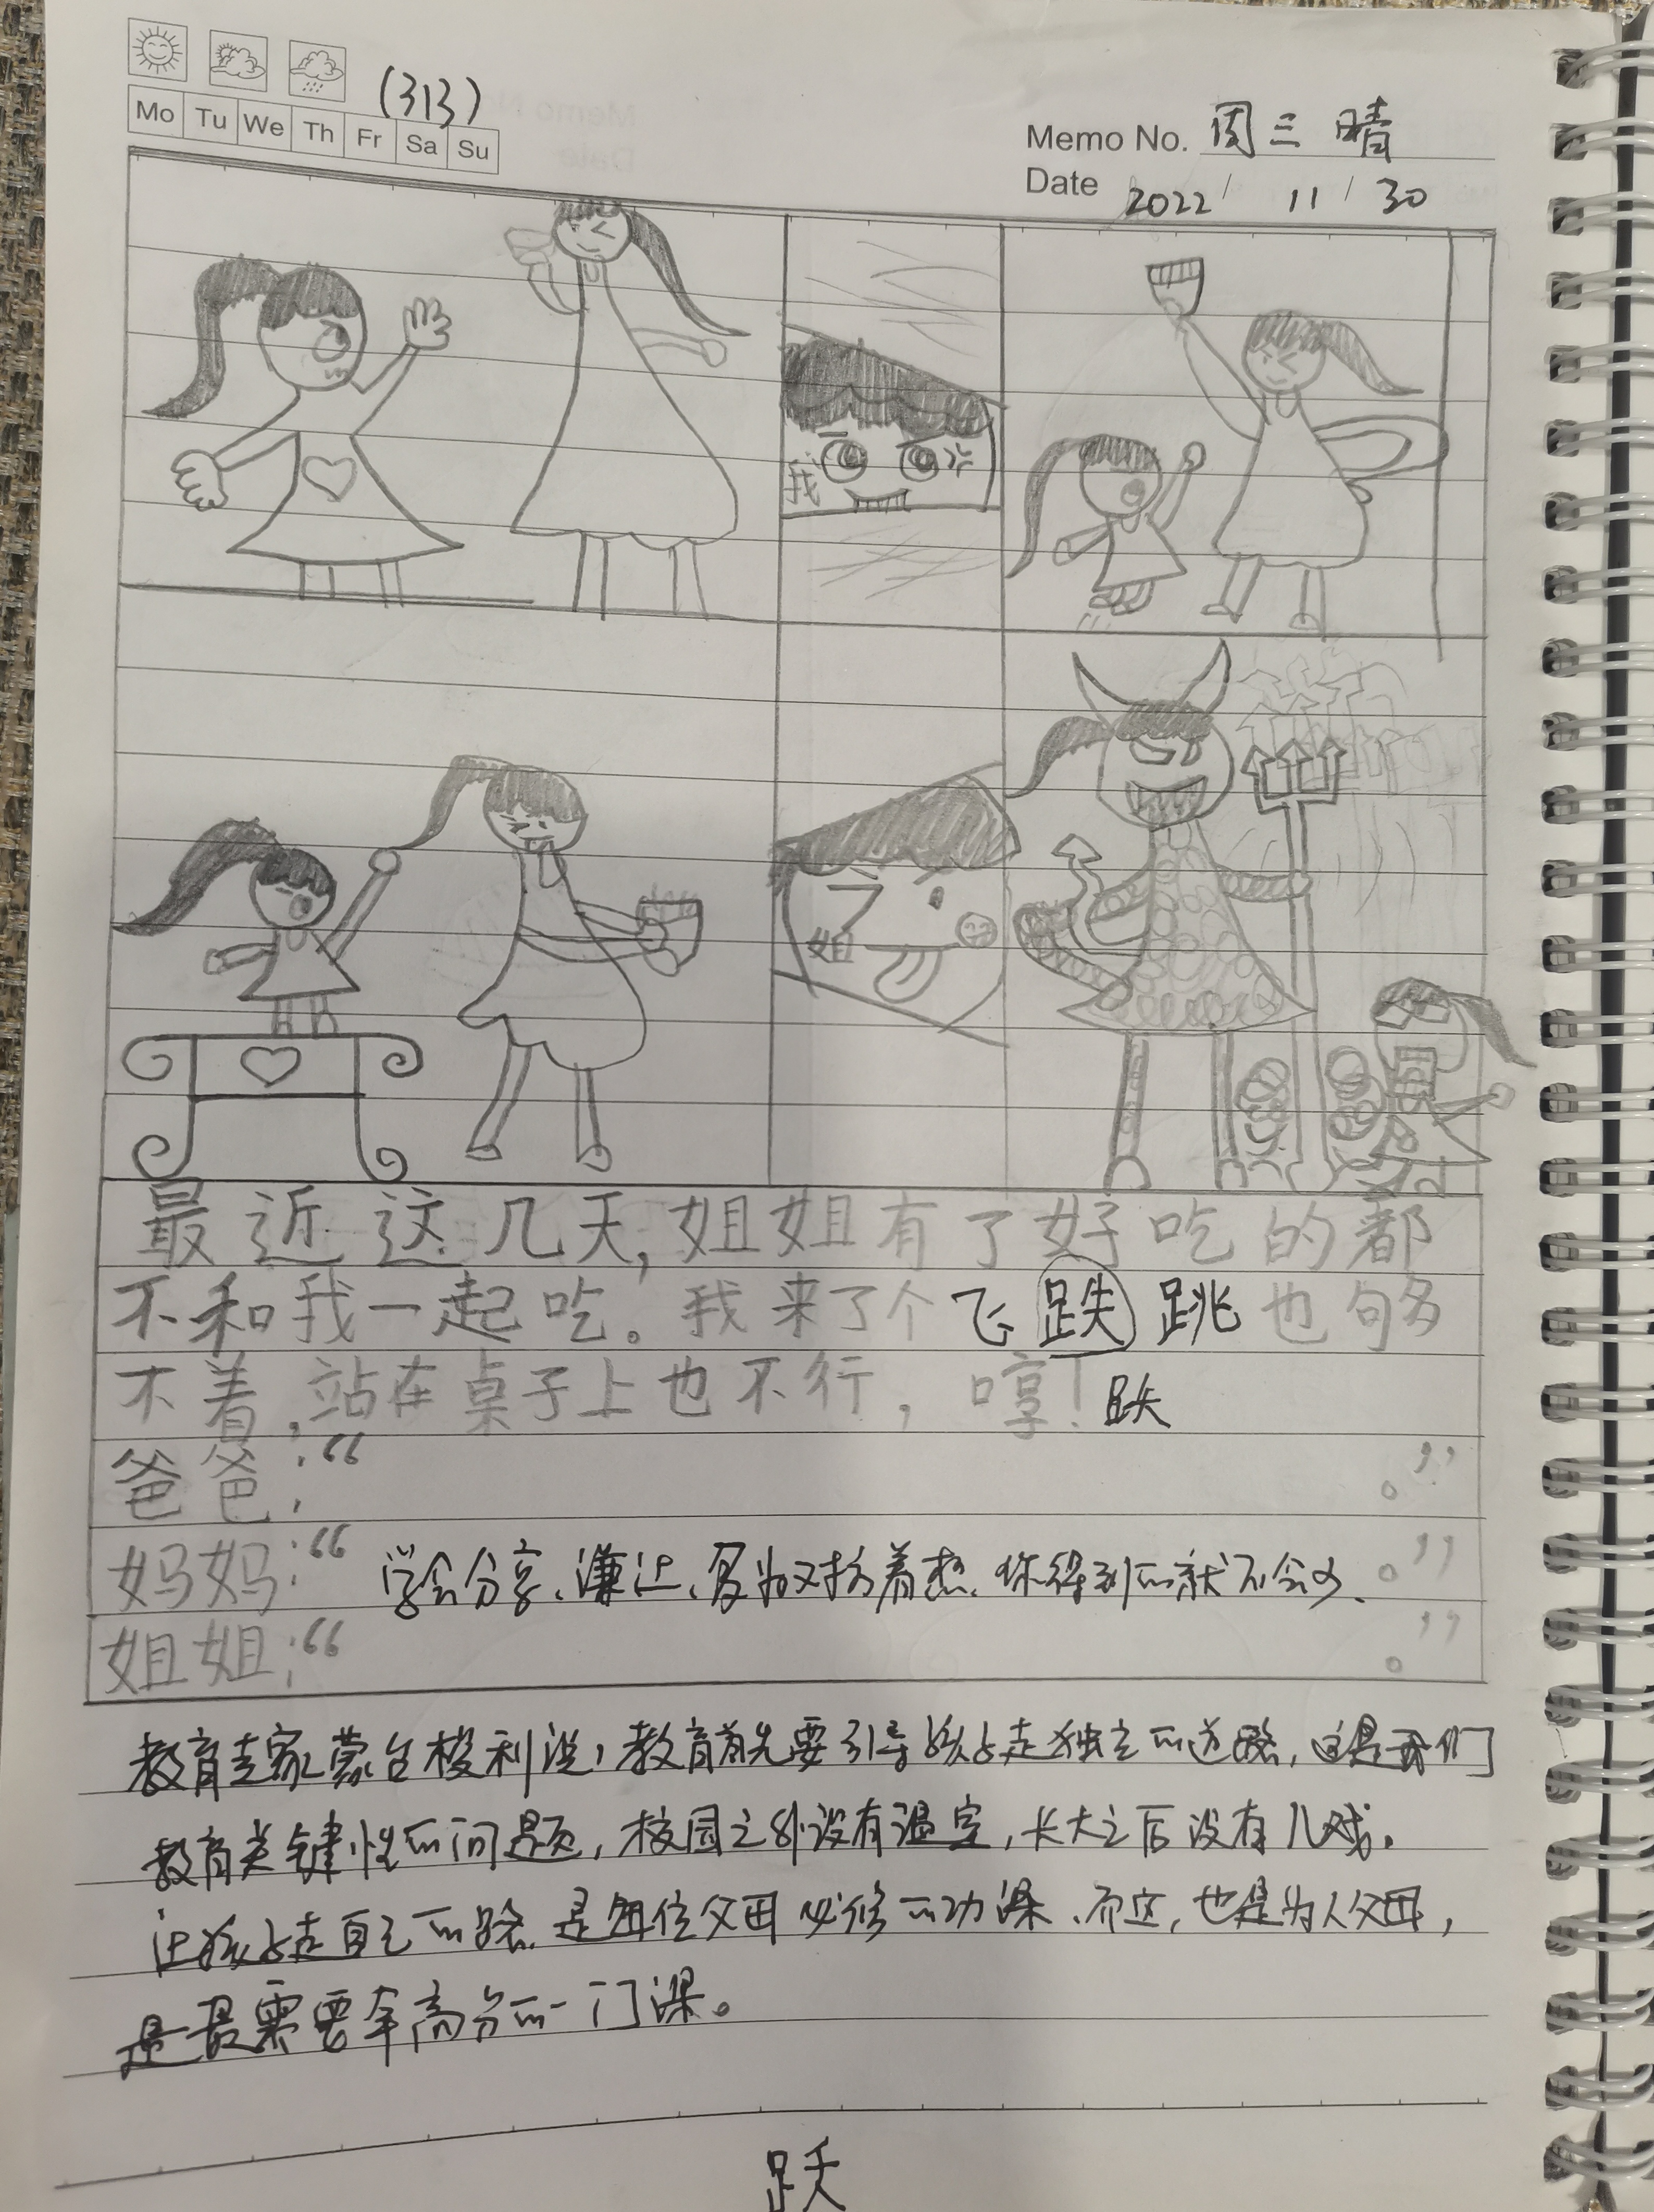 (313)
Mo Tu We Th Fr Sa Su
Memo No. 周三 晴
Date 2022 / 11 / 30
我
姐
最近这几天,姐姐有了好吃的都
不和我一起吃。我来了个飞跌跳也够
不着,站在桌子上也不行，哼！跃
爸爸:“ 。”
妈妈:“学会分享、谦让、多为对方着想.你得到的就不会少、。”
姐姐:“ 。”
教育专家蒙台梭利说,教育首先要引导孩子走独立的道路,这是我们
教育关键性的问题,校园之外没有温室,长大之后没有儿戏.
让孩子走自己的路.是每位父母必修的功课、而这,也是为人父母,
是最需要拿高分的一门课。
跃